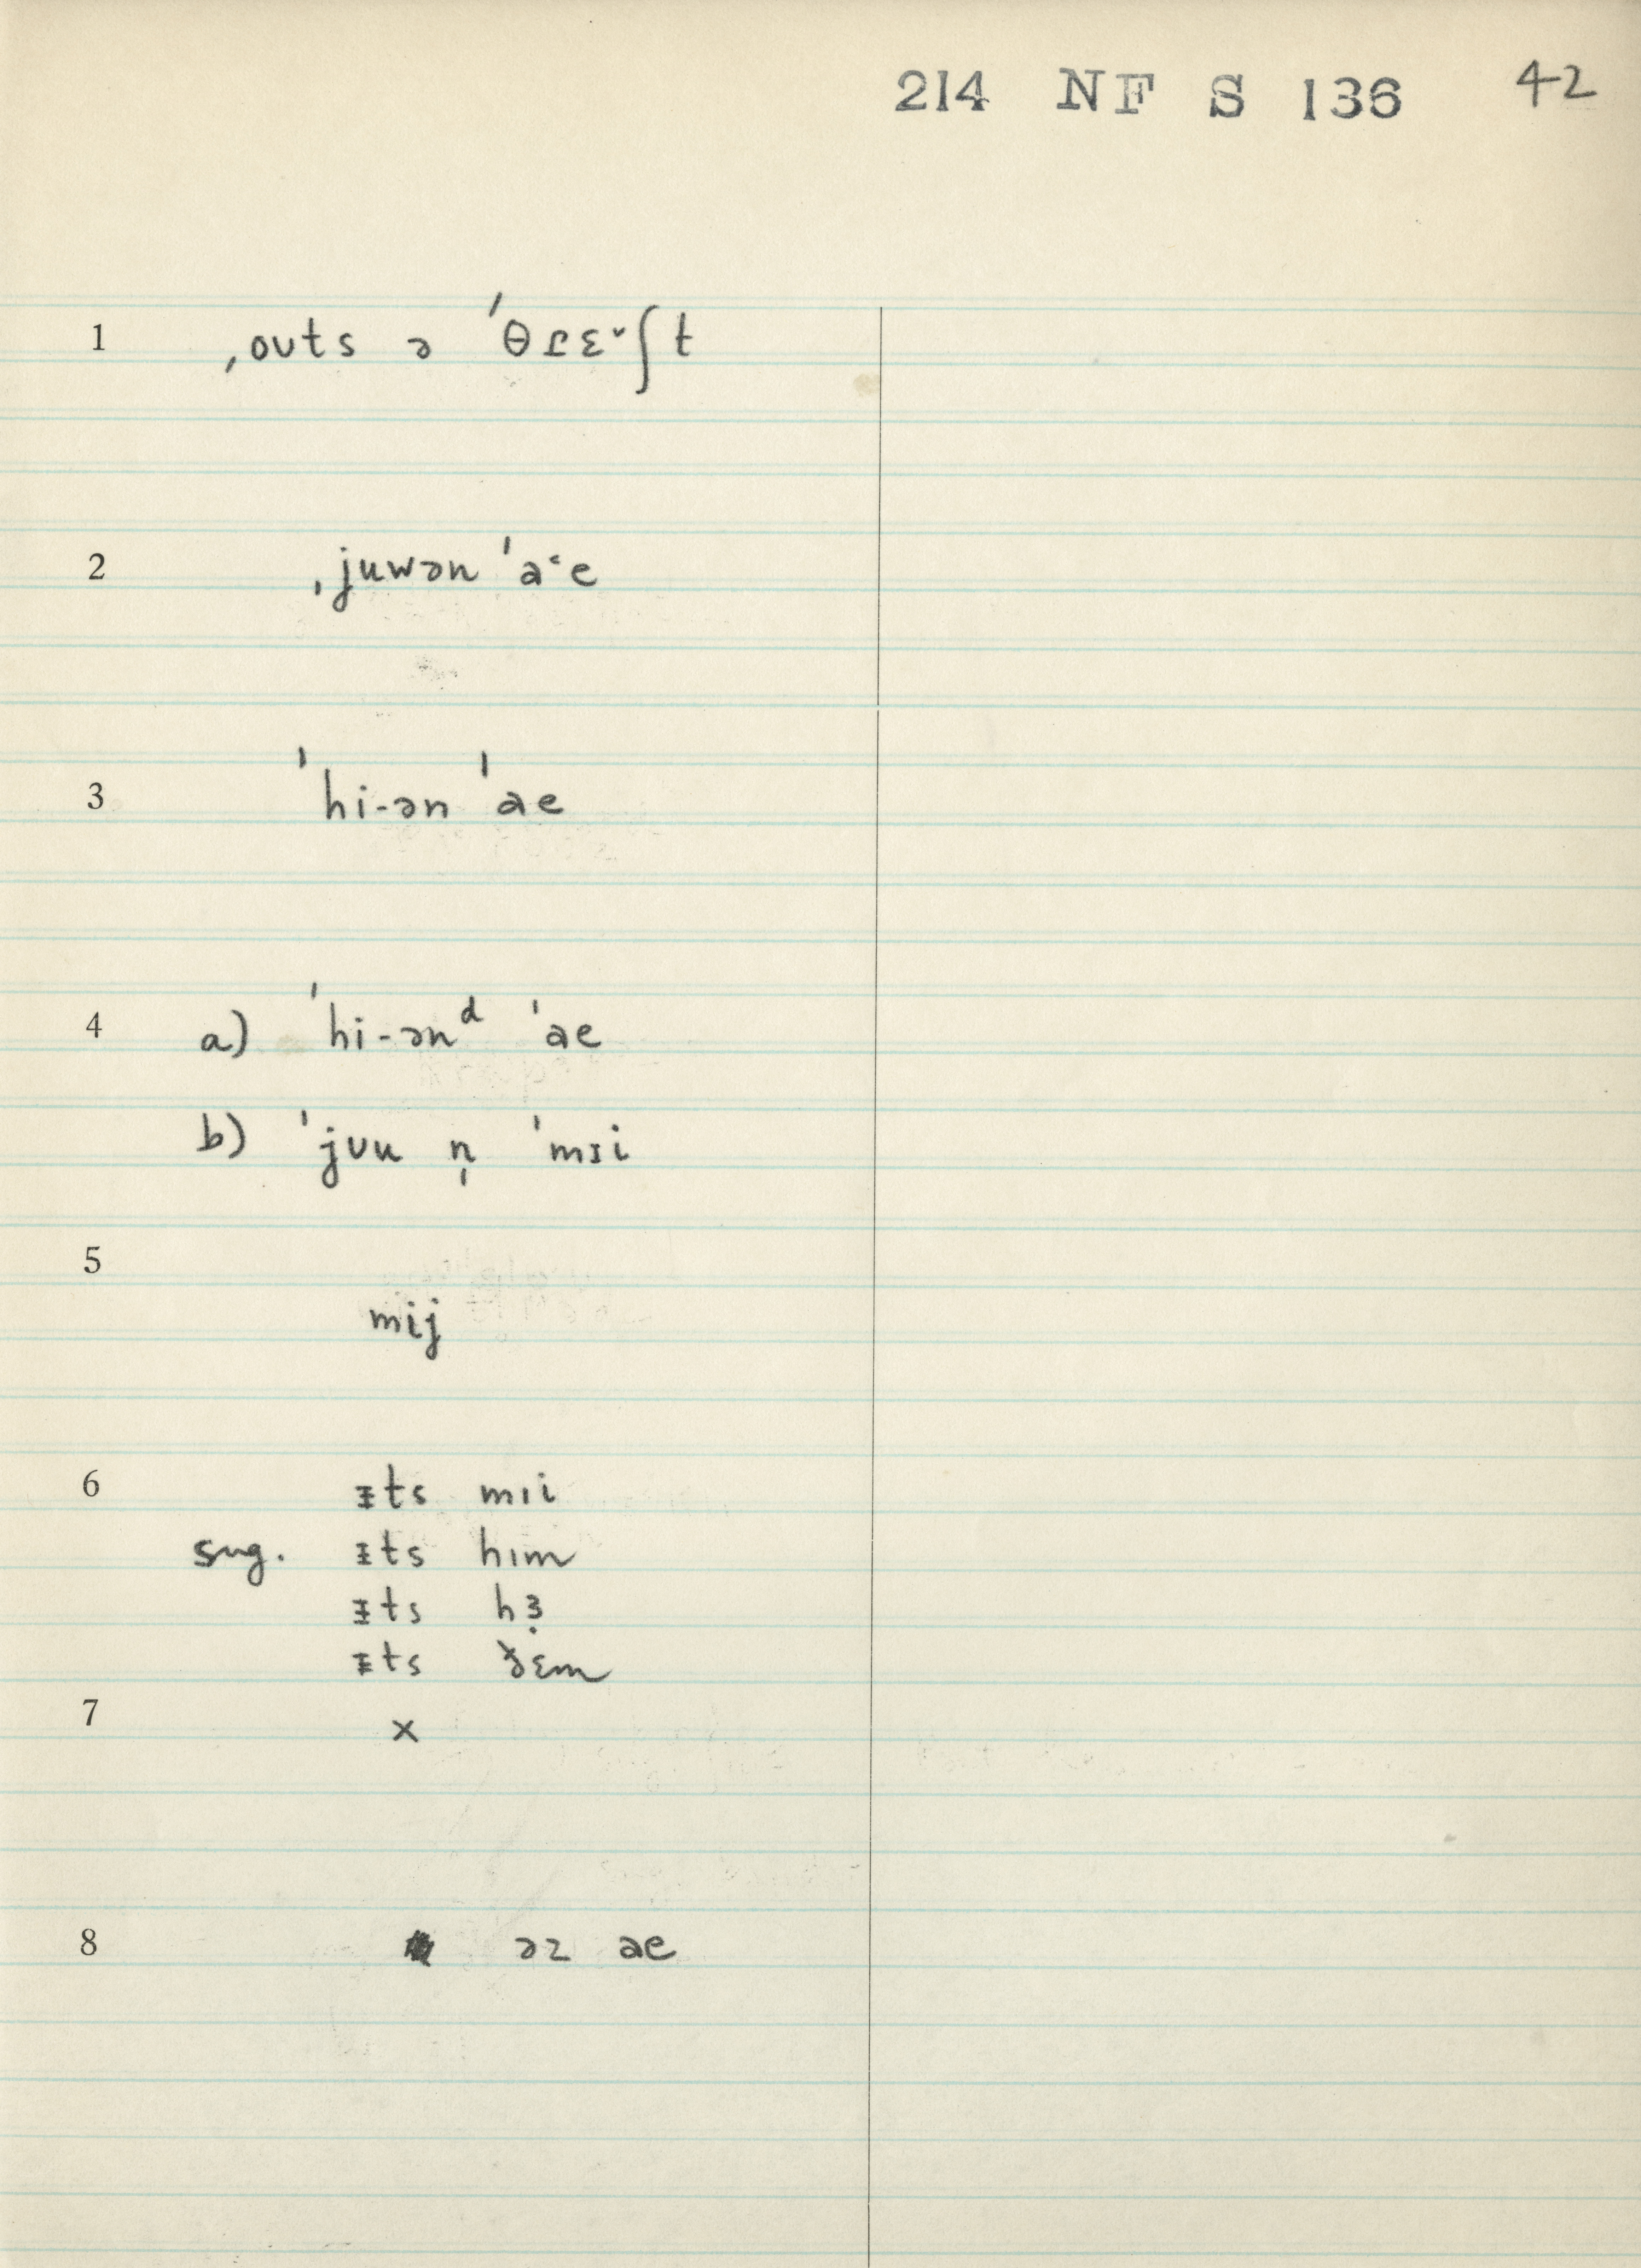 214 NF S 136 42
1 ˌoʊts ə ˈθɾɛ˞ʃt
2 ˌjuwən ˈa˞e
3 ˈhi-ən ˈae
4 a) ˈhi-ənᵈ ˈae
b) ˈjʊu n̩ ˈmɪi
5
mij
6 ᵻts mɪi
sug. ᵻts hɪm
ᵻts hɜ̣
ᵻts ðɛm
7 x
8 əz ae